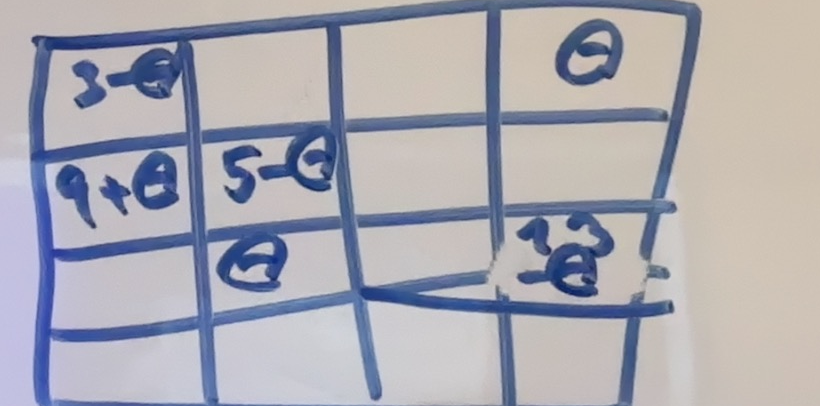 3-θ θ
9+θ 5-θ
θ 13
-θ